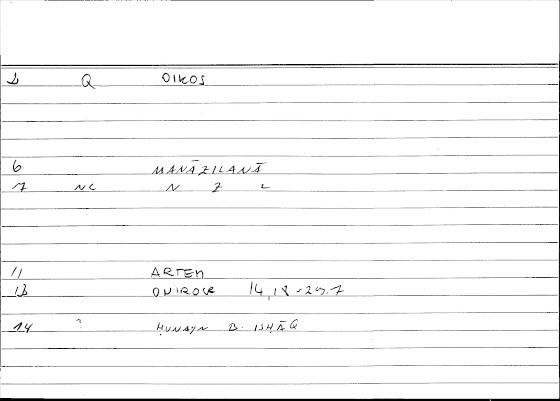 D Q OIKOS
6 MANĀZILANĀ
7 NC N Z L
11 ARTEM
13 ONIROCR 14,18-25.7
14 ? ḤUNAYN B. ISḤĀQ